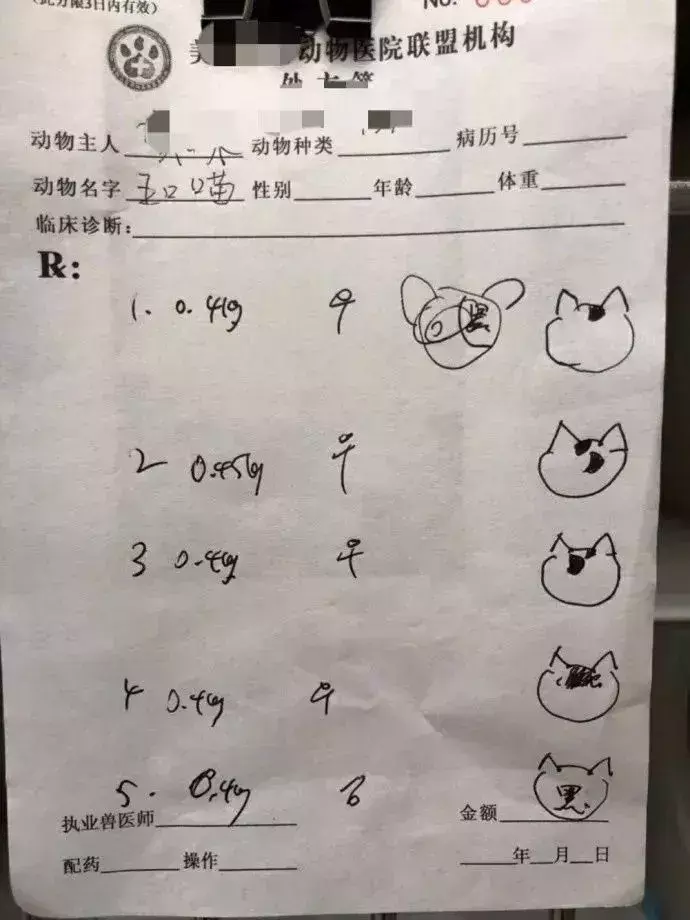 (此方限3日内有效)
No.
动物医院联盟机构
处方笺
动物主人 动物种类 病历号
动物名字 五口喵 性别 年龄 体重
临床诊断:
Rx:
1. 0.4kg ♀
2 0.45kg ♀
3 0.4kg ♀
4 0.4kg ♀
5. 0.4kg 黑
执业兽医师 金额
配药 操作 年 月 日